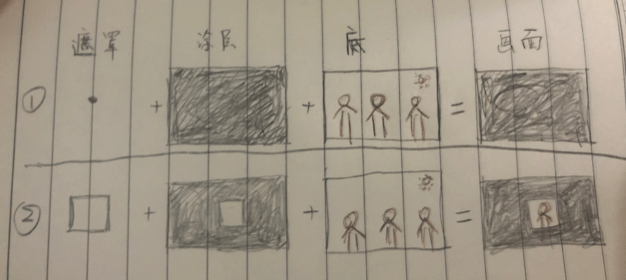 遮罩 涂层 底 画面
① + + =
② + + =